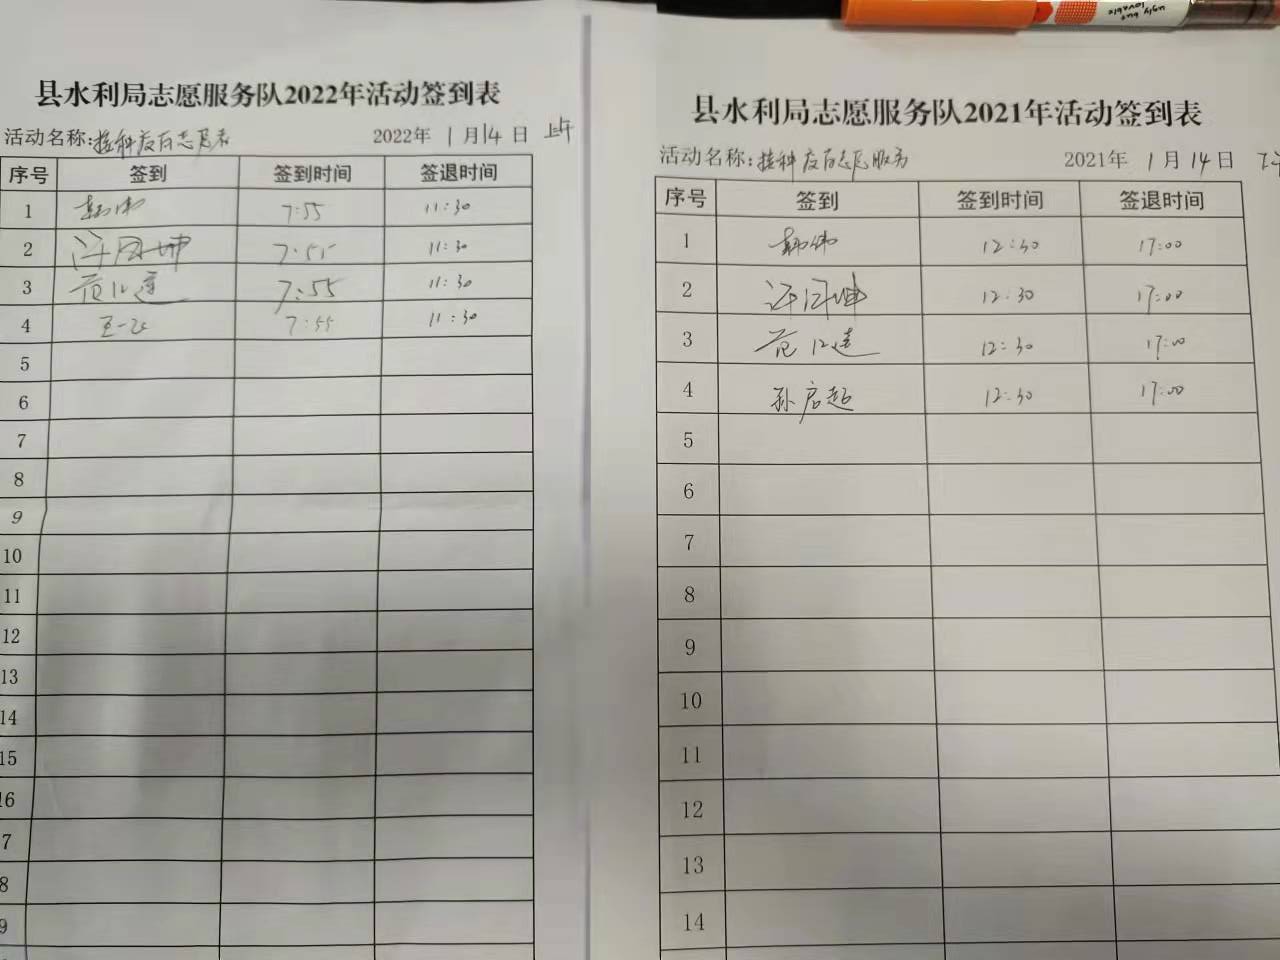 县水利局志愿服务队2022年活动签到表
活动名称: 2022年 1月14日 上午
序号 签到 签到时间 签退时间
1 韩伟 7:55 11:30
2 7:55 11:30
3 7:55 11:30
4 7:55 11:30
5
6
7
8
9
10
11
12
13
14
15
16
7
8
9
县水利局志愿服务队2021年活动签到表
活动名称: 志愿服务 2021年 1月14日
序号 签到 签到时间 签退时间
1 韩伟 12:30 17:00
2 12:30 17:00
3 12:30 17:00
4 孙启超 12:30 17:00
5
6
7
8
9
10
11
12
13
14
ugly but
lovable